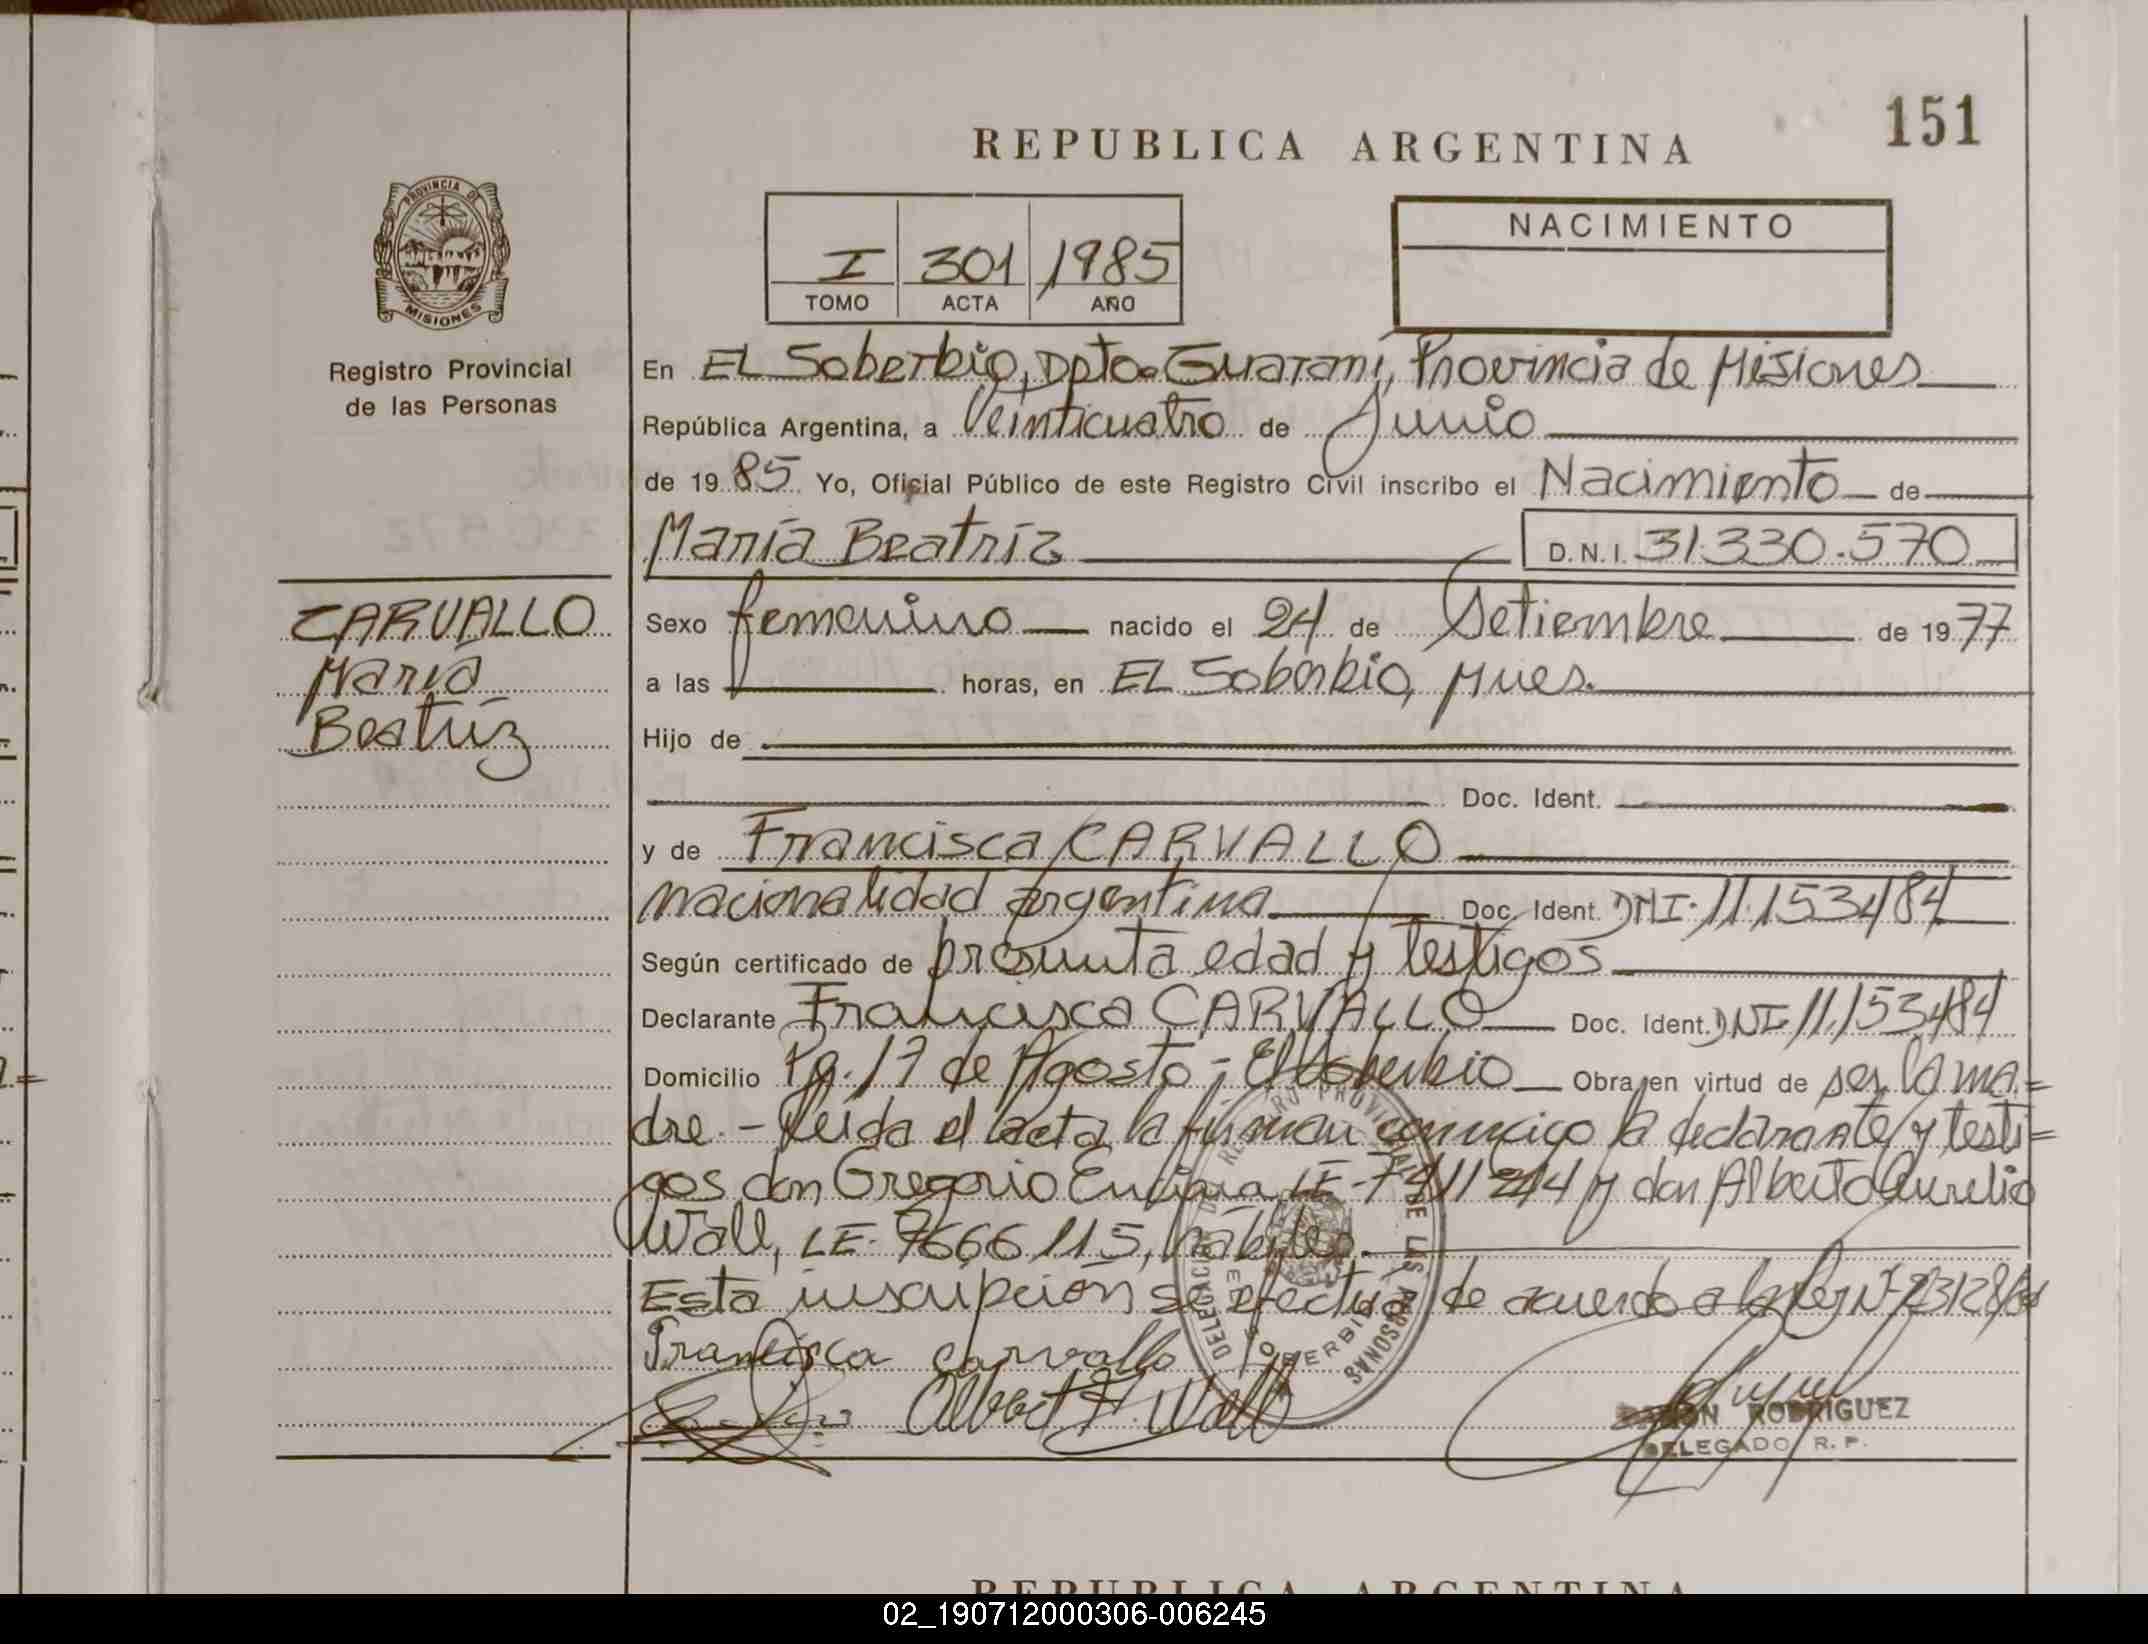 151
REPUBLICA ARGENTINA
PROVINCIA DE
MISIONES
Registro Provincial
de las Personas
I 301 1985
TOMO ACTA AÑO
NACIMIENTO
En EL Soberbio, Dpto. Guaraní, Provincia de Misiones
República Argentina, a Veinticuatro de Junio
de 1985 Yo, Oficial Público de este Registro Civil inscribo el Nacimiento de
María Beatríz D.N.I. 31.330.570
CARVALLO
María
Beatríz
Sexo femenino nacido el 24 de Setiembre de 1977
a las horas, en EL Soberbio, Mnes.
Hijo de
Doc. Ident.
y de Francisca CARVALLO
nacionalidad argentina Doc. Ident. DNI. 11.153.484
Según certificado de presunta edad y testigos
Declarante Francisca CARVALLO Doc. Ident. DNI 11.153.484
Domicilio Pg. 17 de Agosto - El Soberbio Obra en virtud de ser la ma=
dre. - Leída el acta la firman conmigo la declarante y testi=
gos don Gregorio LE- y don Alberto Aurelio
Wall, LE. 7666115, hábiles.
Esta inscripción se efectúa de acuerdo a la Ley Nº 23128/84
Francisca carvallo
Albert A. Wall
RAMON RODRIGUEZ
DELEGADO R. P.
DELEGACION DEL REGISTRO PROVINCIAL DE LAS PERSONAS
EL SOBERBIO
REPUBLICA ARGENTINA
02_190712000306-006245